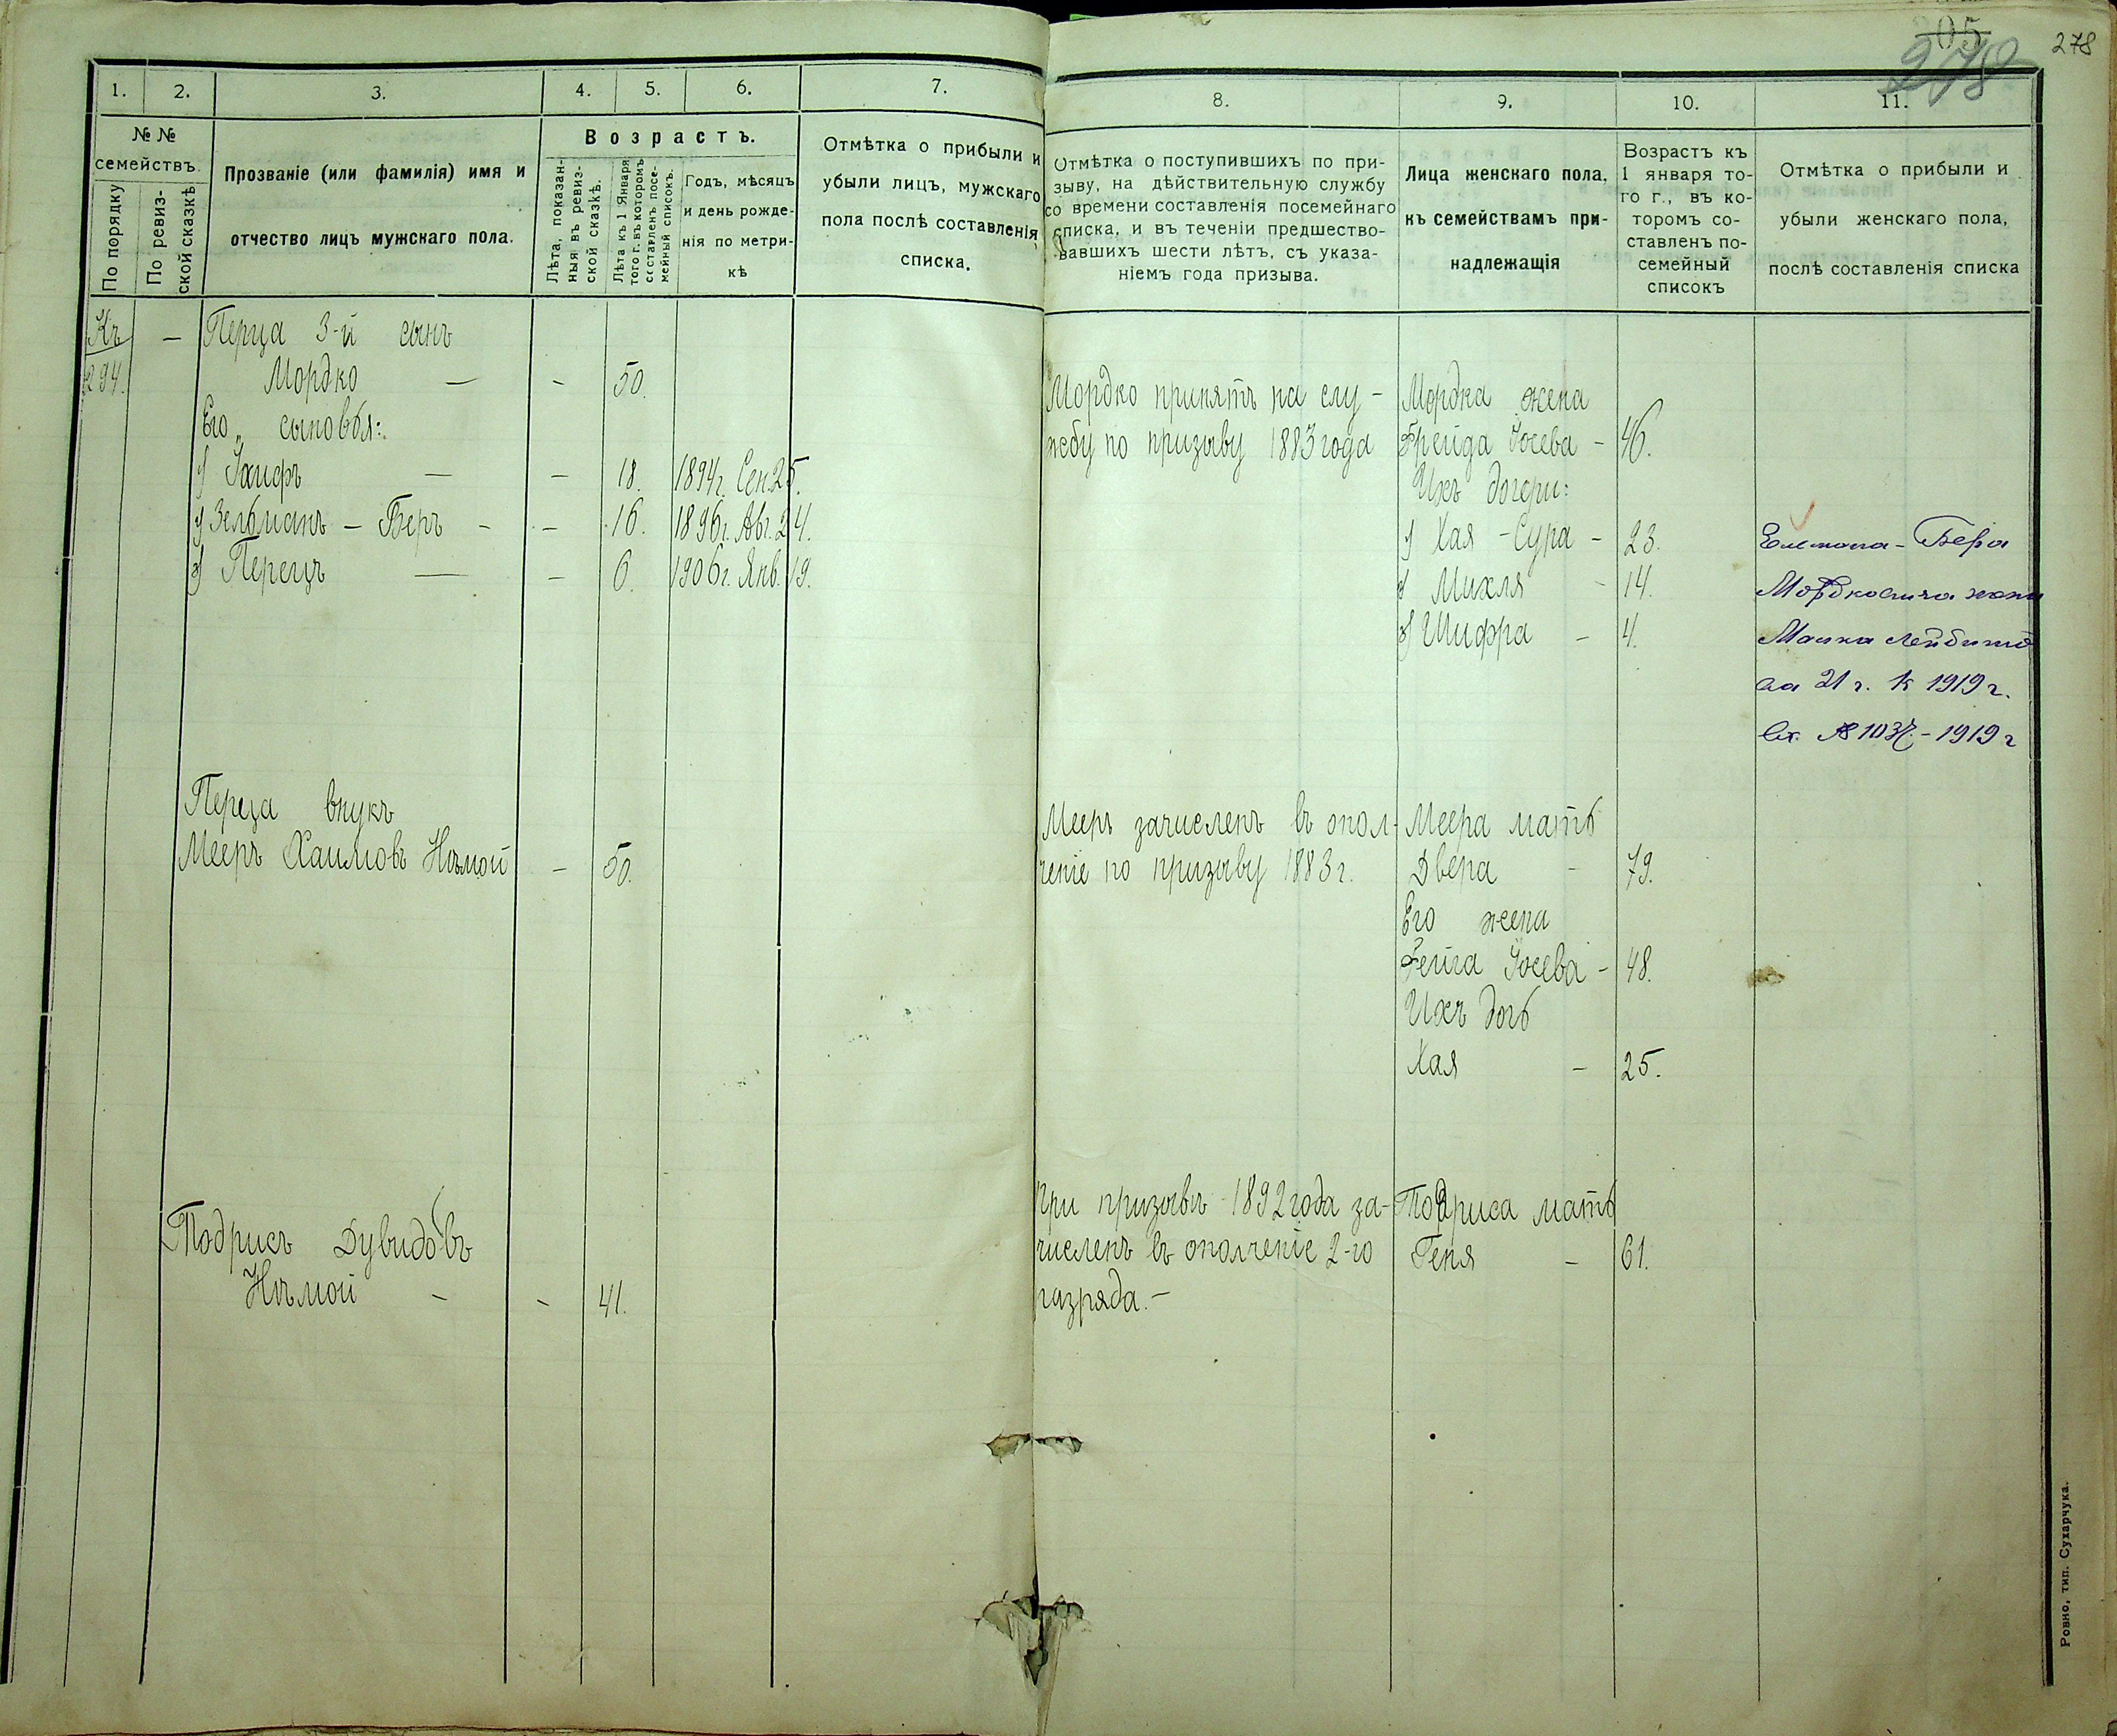 205
278
278
1.
2.
3.
4.
5.
6.
7.
8.
9.
10.
11.
№ №
семействъ.
По порядку
По ревиз-
ской сказкѣ
Прозваніе (или фамилія) имя и
отчество лицъ мужскаго пола.
Возрастъ.
Лѣта, показан-
ныя въ ревиз-
ской сказкѣ.
Лѣта къ 1 Января
того г. въ которомъ
составленъ посе-
мейный списокъ.
Годъ, мѣсяцъ
и день рожде-
нія по метри-
кѣ
Отмѣтка о прибыли и
убыли лицъ, мужскаго
пола послѣ составленія
списка.
Отмѣтка о поступившихъ по при-
зыву, на дѣйствительную службу
со времени составленія посемейнаго
списка, и въ теченіи предшество-
вавшихъ шести лѣтъ, съ указа-
ніемъ года призыва.
Лица женскаго пола,
къ семействамъ при-
надлежащія
Возрастъ къ
1 января то-
го г., въ ко-
торомъ со-
ставленъ по-
семейный
списокъ
Отмѣтка о прибыли и
убыли женскаго пола,
послѣ составленія списка
Къ — Перца 3-й сынъ
294. Мордко — - 50.
Его сыновья:
1) Іхифъ — - 18. 1894г. Сен. 25.
2) Зельманъ - Беръ - - 16. 1896г. Авг. 24.
3) Перецъ — - 6. 1906г. Янв. 19.
Мордко принятъ на слу-
жбу по призыву 1883 года
Мордка жена
Фрейда Іосева - 46.
Ихъ дочери:
1) Хая - Сура - 23.
2) Михля - 14.
3) Шифра - 4.
Бера
Мордковича жена
Малка
21 г. к 1919 г.
1919 г
Переца внукъ
Мееръ Хаимовъ Нѣмой - 50.
Мееръ зачисленъ въ опол-
ченіе по призыву 1883 г.
Меера мать
Двера - 79.
Его жена
Фейга Іосева - 48.
Ихъ дочь
Хая - 25.
Тодрисъ Дувидовъ
Нѣмой - - 41.
При призывѣ 1892 года за-
численъ въ ополченіе 2-го
разряда. -
Тодриса мать
Геня - 61.
Ровно, тип. Сухарчука.